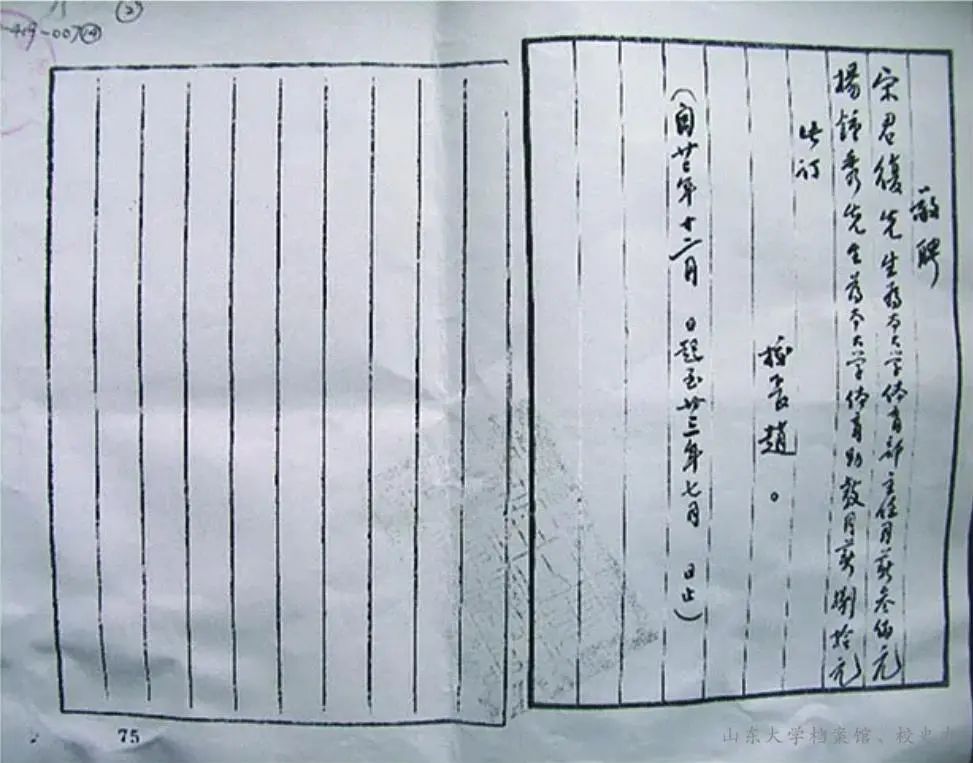 敬聘
宋君復先生為本大學体育部主任月薪叁佰元
楊鍾秀先生為本大學体育助教月薪捌拾元
此订
校長趙。
(自廿二年十二月 日起至廿三年七月 日止)
75
山东大学档案馆、校史